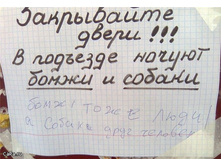 Закрывайте
двери !!!
В подъезде ночуют
бомжи и собаки
бомжи тоже люди
а собака друг человека